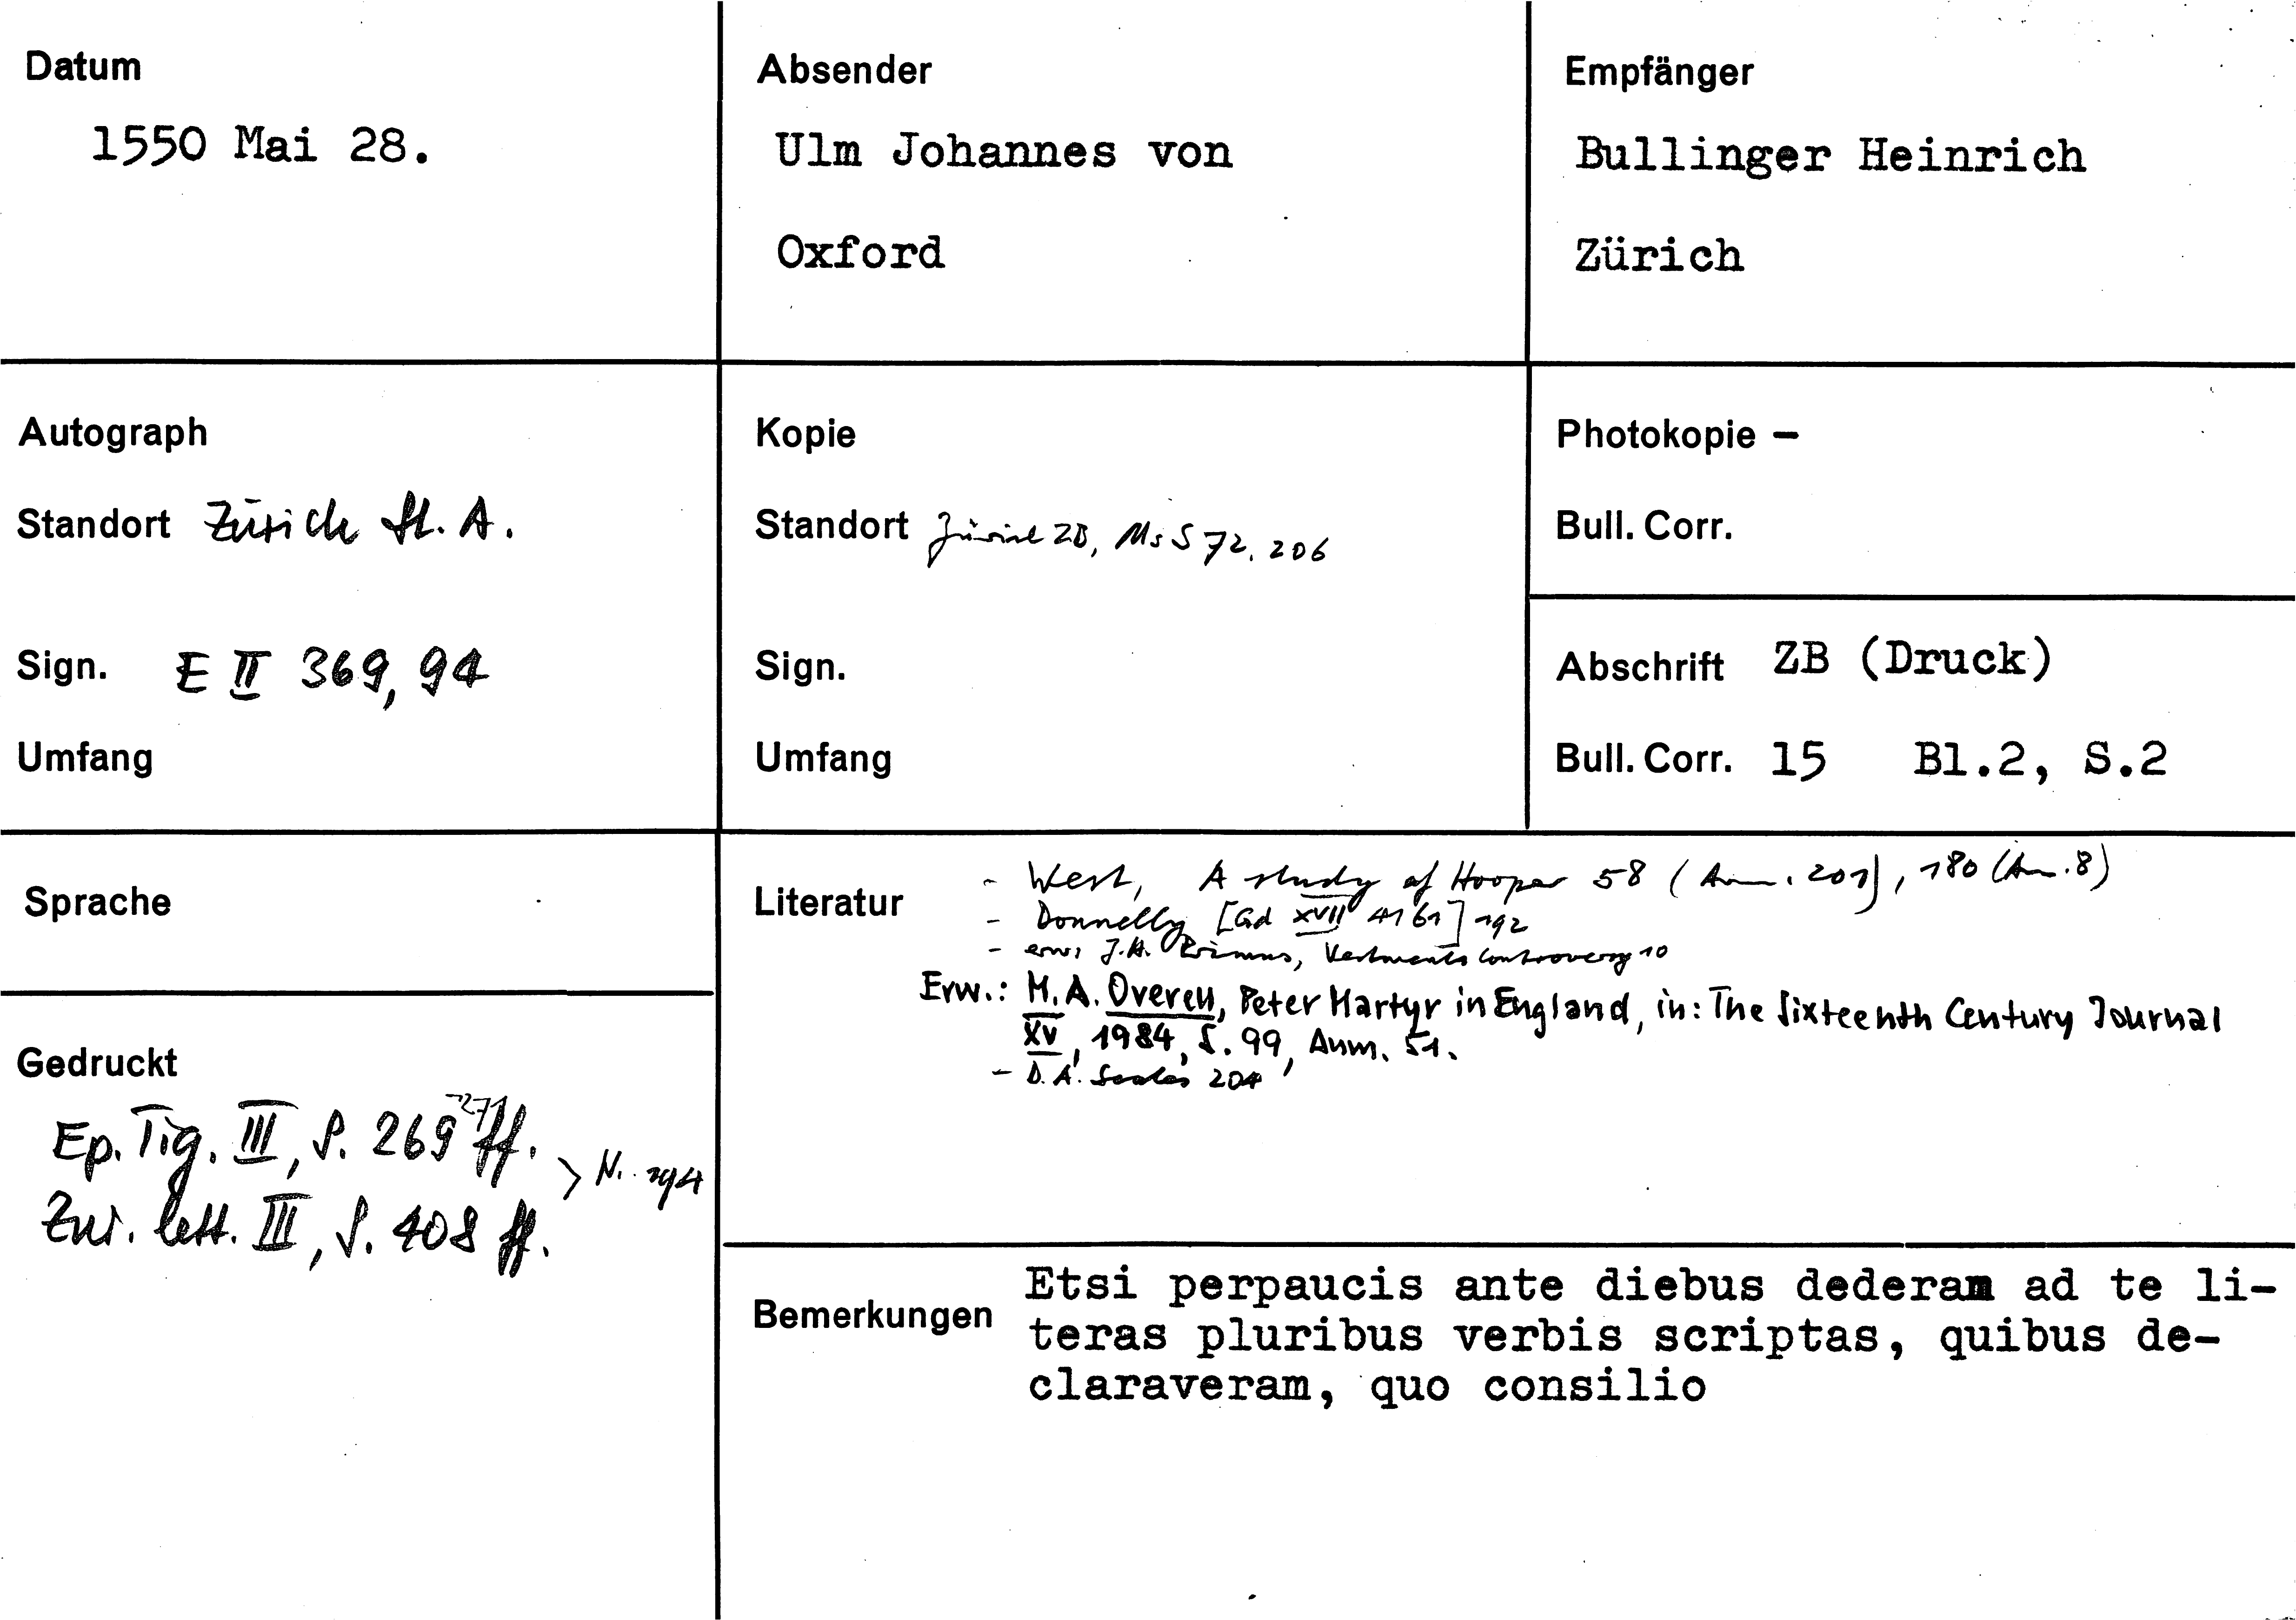 Datum
1550 Mai 28.
Absender
Ulm Johannes von
Oxford
Empfänger
Bullinger Heinrich
Zürich
Autograph
Standort Zürich St. A.
Sign. E II 369, 94
Umfang
Kopie
Standort Zürich ZB, Ms S 72, 206
Sign.
Umfang
Photokopie –
Bull. Corr.
Abschrift ZB (Druck)
Bull. Corr. 15 Bl.2, S.2
Sprache
Gedruckt
Ep. Tig. III, S. 269-271 ff.
> N. 194
Zür. lett. III, S. 408 ff.
Literatur
- West, A study of Hooper 58 (Anm. 201), 180 (Anm. 8)
- Donnelly [Gd XVII 4161] 192
- erw: J.H. Primus, Vestments Controversy 10
Erw.: M.A. Overell, Peter Martyr in England, in: The Sixteenth Century Journal
XV, 1984, S. 99, Anm. 51.
- D. A. Scales 204
Bemerkungen
Etsi perpaucis ante diebus dederam ad te li-
teras pluribus verbis scriptas, quibus de-
claraveram, quo consilio